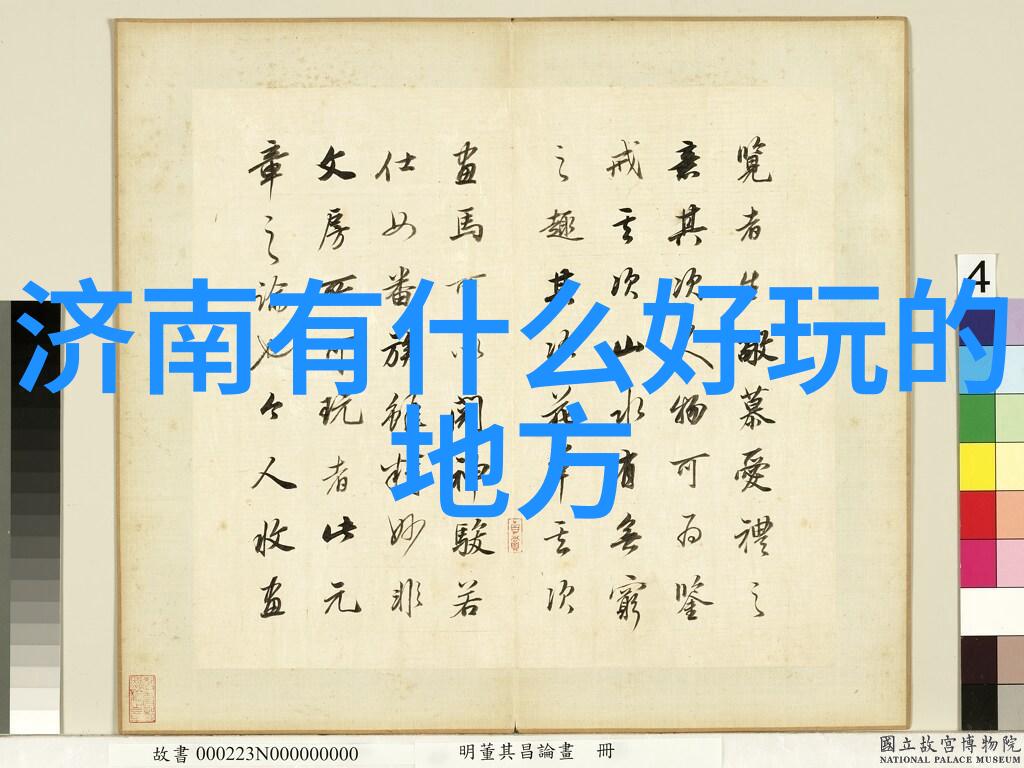 济南有什么好玩的
地方
覽者生敬慕愛禮之
意其次人物可為鑒
戒其次山水有無窮
之趣其次花草其次
畫馬可以閱神駿若
仕女番族雖精妙非
文房所可玩者此元
章之論也今人收畫
4
故書 000223N000000000
明董其昌論畫 冊
國立故宮博物院
NATIONAL PALACE MUSEUM